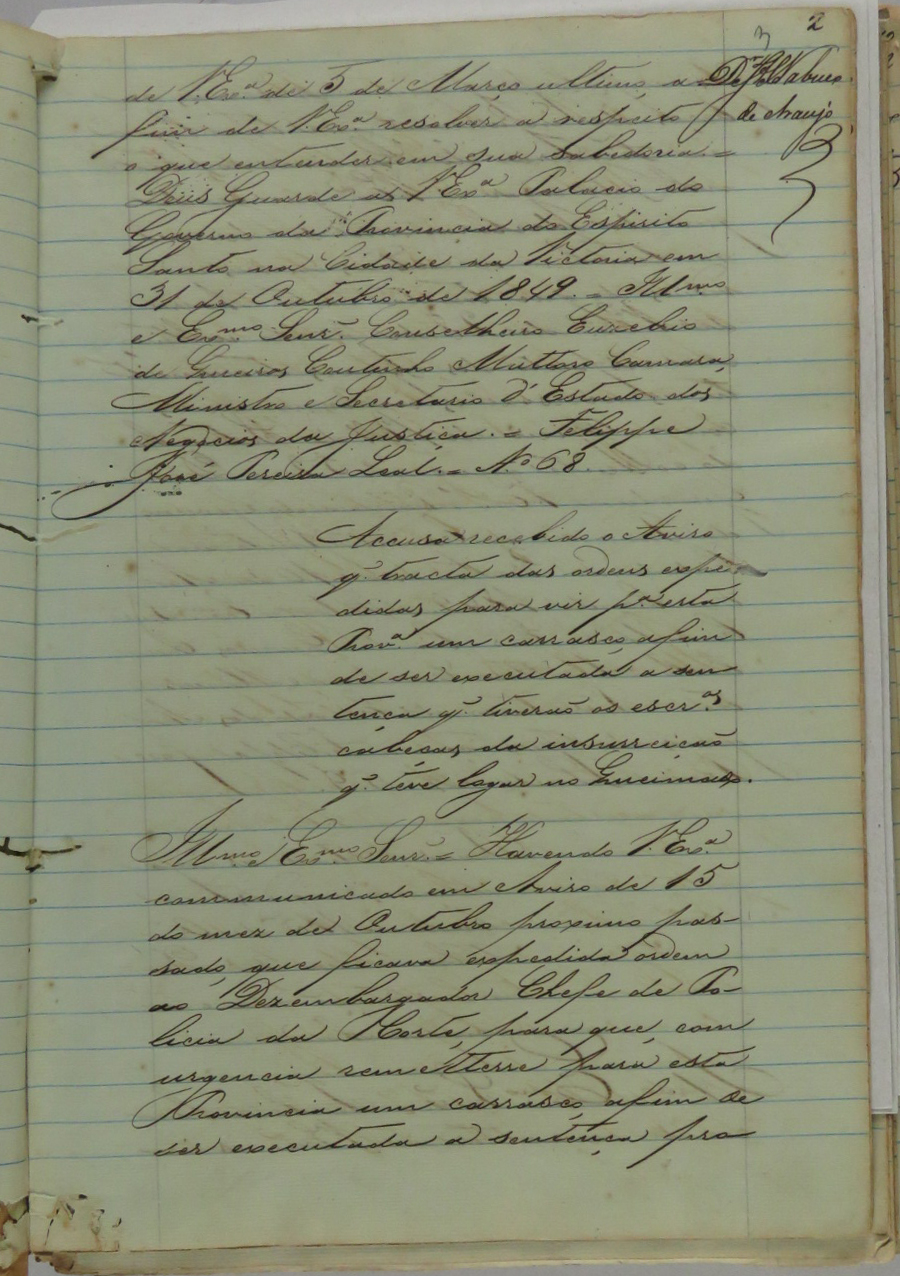 3 2
de V. Exª. de 5 de Março ultimo, a
fim de V. Exª. resolver a respeito
o que entender em sua Sabedoria. =
Deus Guarde a V. Exª Palacio do
Governo da Provincia do Espirito
Santo na Cidade da Victoria em
31 de Outubro de 1849. = Illmo
e Exmo. Senr. Conselheiro Euzebio
de Queiros Coutinho Mattoso Camara,
Ministro e Secretario d'Estado dos
Negocios da Justiça. = Felippe
José Pereira Leal. = Nº 68.
Nabuco
de Araujo
Accusa recebido o Aviso
q. tracta das ordens expe
didas para vir pª esta
Provª. um carrasco, afim
de ser executada a sen
tença q. tiverão os escrºs
cabeças da insurreição
q. teve logar no Queimado.
Illmo e Exmo Senr. = Havendo V. Exª.
communicado em Aviso de 15
do mez de Outubro proximo pas-
sado, que ficava expedida ordem
ao Dezembargador Chefe de Po-
licia da Corte, para que, com
urgencia remettesse para esta
Provincia um carrasco, afim de
ser executada a sentença pro